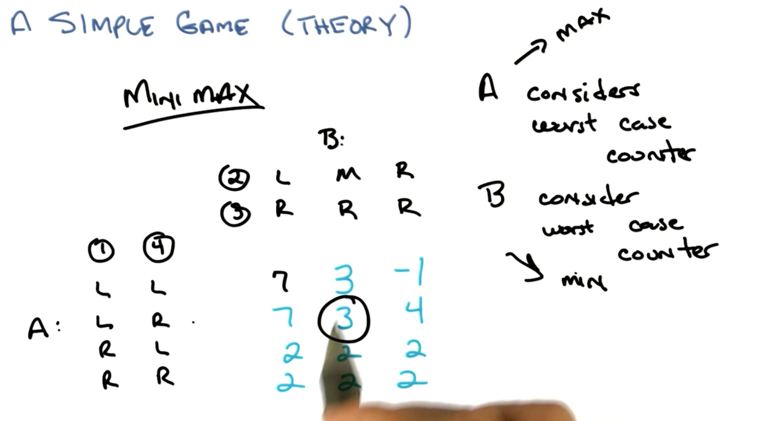 A SIMPLE GAME (THEORY)
MINIMAX
B:
② L M R
③ R R R
① ④
L L 7 3 -1
A: L R 7 3 4
R L 2 2 2
R R 2 2 2
MAX
A considers
worst case
counter
B consider
worst case
counter
min